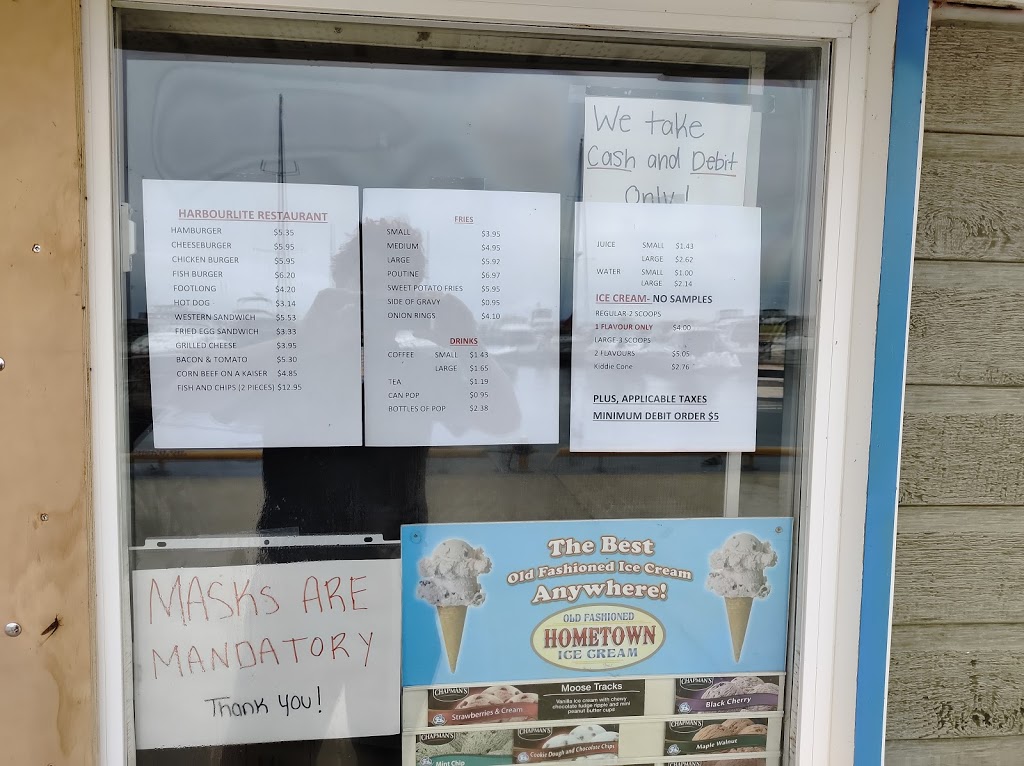 We take
Cash and Debit
Only!
HARBOURLITE RESTAURANT
HAMBURGER $5.35
CHEESEBURGER $5.95
CHICKEN BURGER $5.95
FISH BURGER $6.20
FOOTLONG $4.20
HOT DOG $3.14
WESTERN SANDWICH $5.53
FRIED EGG SANDWICH $3.33
GRILLED CHEESE $3.95
BACON & TOMATO $5.30
CORN BEEF ON A KAISER $4.85
FISH AND CHIPS (2 PIECES) $12.95
FRIES
SMALL $3.95
MEDIUM $4.95
LARGE $5.92
POUTINE $6.97
SWEET POTATO FRIES $5.95
SIDE OF GRAVY $0.95
ONION RINGS $4.10
DRINKS
COFFEE SMALL $1.43
LARGE $1.65
TEA $1.19
CAN POP $0.95
BOTTLES OF POP $2.38
JUICE SMALL $1.43
LARGE $2.62
WATER SMALL $1.00
LARGE $2.14
ICE CREAM- NO SAMPLES
REGULAR-2 SCOOPS
1 FLAVOUR ONLY $4.00
LARGE-3 SCOOPS
2 FLAVOURS $5.05
Kiddie Cone $2.76
PLUS, APPLICABLE TAXES
MINIMUM DEBIT ORDER $5
MASKS ARE
MANDATORY
Thank you!
The Best
Old Fashioned Ice Cream
Anywhere!
OLD FASHIONED
HOMETOWN
ICE CREAM
CHAPMAN'S
Strawberries & Cream
Moose Tracks
Vanilla ice cream with chewy
chocolate fudge ripple and mini
peanut butter cups
CHAPMAN'S
Black Cherry
CHAPMAN'S
Mint Chip
CHAPMAN'S
Cookie Dough and Chocolate Chips
CHAPMAN'S
Maple Walnut